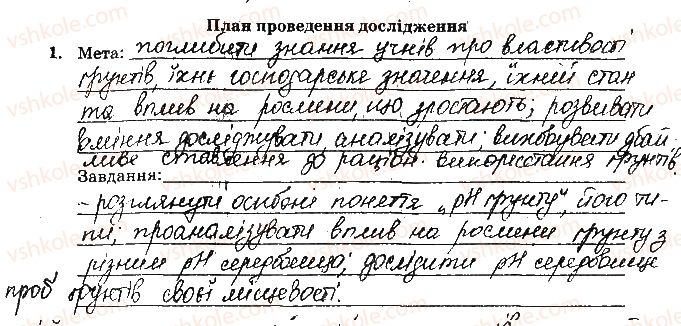 План проведення дослідження
1. Мета: поглибити знання учнів про властивості
ґрунтів, їхнє господарське значення, їхній стан
та вплив на рослини, що зростають; розвивати
вміння досліджувати, аналізувати; виховувати дбай-
ливе ставлення до раціон. використання ґрунтів.
Завдання:
- розглянути особливі поняття „pH ґрунту", його ти-
пи; проаналізувати вплив на рослини ґрунту з
різним pH середовища; дослідити pH середовище
проб ґрунтів своєї місцевості.